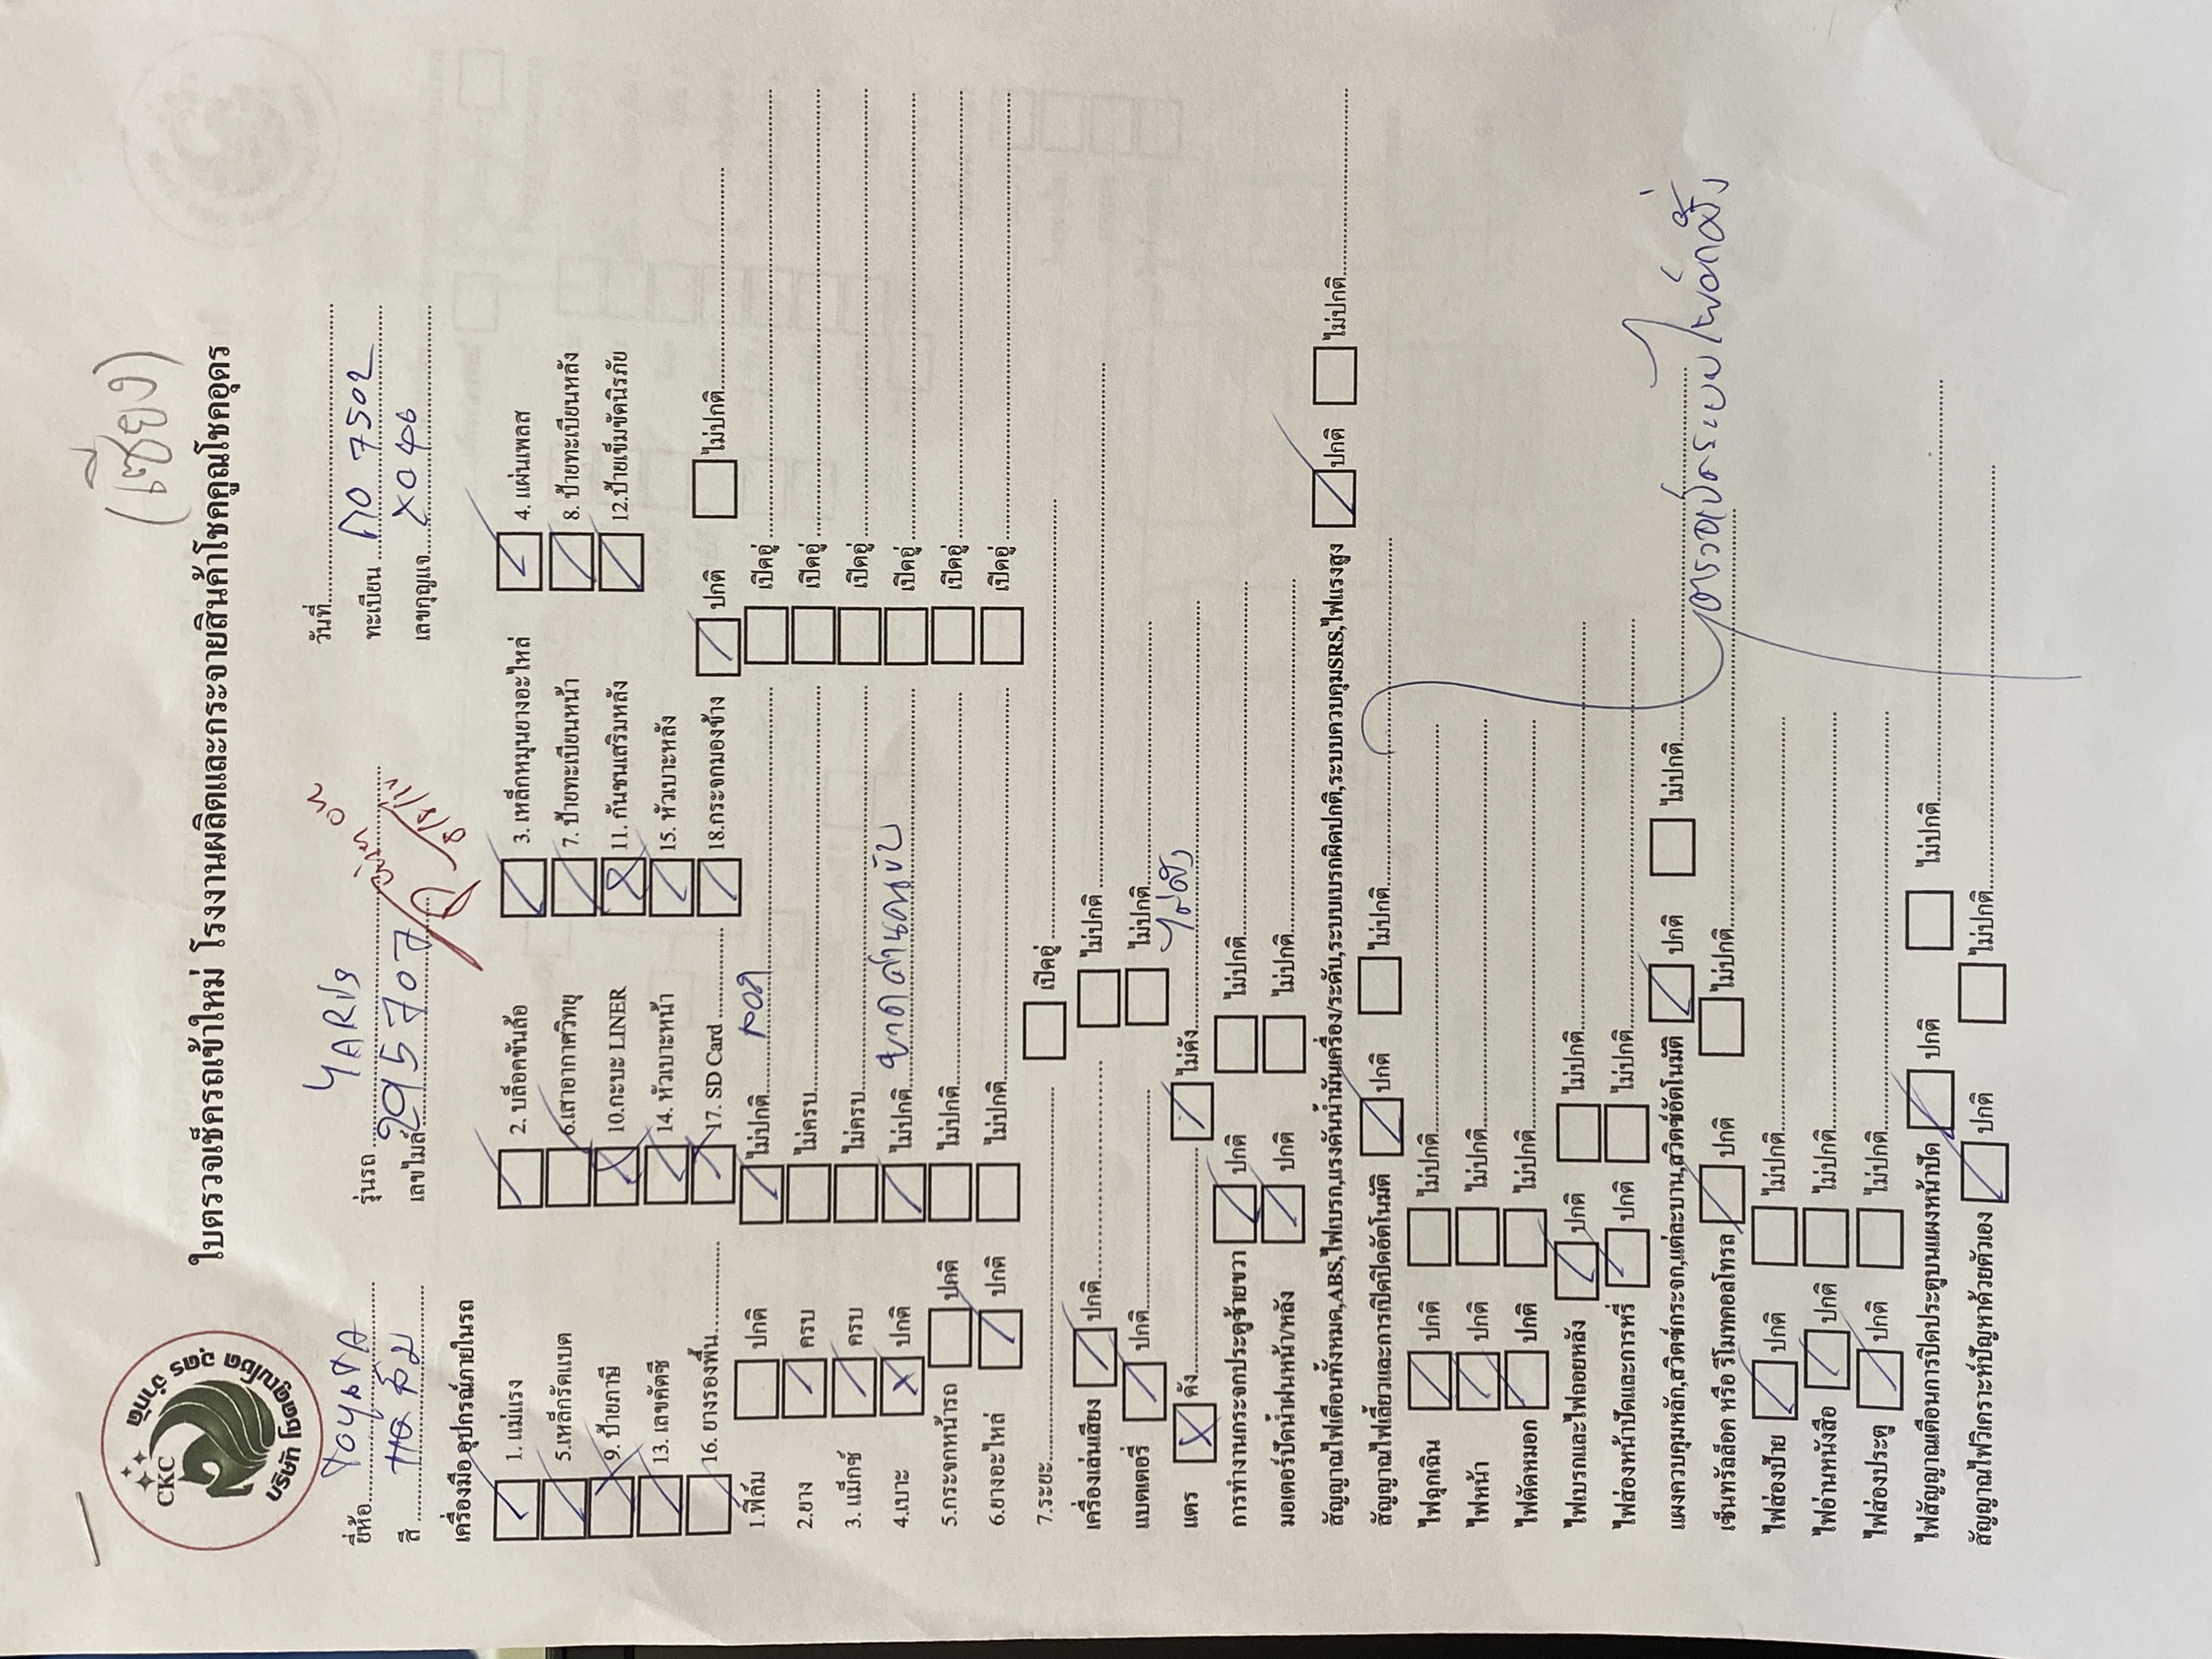 (เซียง)
CKC
บริษัท โชคคูณโชค อุดร จำกัด
ใบตรวจเช็ครถเข้าใหม่ โรงงานผลิตและกระจายสินค้าโชคคูณโชคอุดร
วันที่
ยี่ห้อ TOYOTA รุ่นรถ YARIS ทะเบียน 7502
สี ส้ม เลขไมล์ 295707 เลขกุญแจ X0406
เครื่องมือ อุปกรณ์ภายในรถ
1. แม่แรง 2. บล็อคขันล้อ 3. เหล็กหมุนยางอะไหล่ 4. แผ่นเพลส
5.เหล็กรัดแบต 6.เสาอากาศวิทยุ 7. ป้ายทะเบียนหน้า 8. ป้ายทะเบียนหลัง
9. ป้ายภาษี 10.กะบะ LINER 11. กันชนเสริมหลัง 12.ป้ายเข็มขัดนิรภัย
13. เลขคัตซี 14. หัวเบาะหน้า 15. หัวเบาะหลัง
16. ยางรองพื้น 17. SD Card 18.กระจกมองข้าง ปกติ ไม่ปกติ
1.ฟิล์ม ปกติ ไม่ปกติ ลอก เปิดอู่
2.ยาง ครบ ไม่ครบ เปิดอู่
3. แม็กซ์ ครบ ไม่ครบ เปิดอู่
4.เบาะ ปกติ ไม่ปกติ ขาดด้านคนขับ เปิดอู่
5.กระจกหน้ารถ ปกติ ไม่ปกติ เปิดอู่
6.ยางอะไหล่ ปกติ ไม่ปกติ เปิดอู่
7.ระยะ เปิดอู่
เครื่องเล่นเสียง ปกติ ไม่ปกติ
แบตเตอรี่ ปกติ ไม่ปกติ
แตร ดัง ไม่ดัง ไม่ดัง
การทำงานกระจกประตูซ้ายขวา ปกติ ไม่ปกติ
มอเตอร์ปัดน้ำฝนหน้า/หลัง ปกติ ไม่ปกติ
สัญญาณไฟเตือนทั้งหมด,ABS,ไฟเบรก,แรงดันน้ำมันเครื่อง/ระดับ,ระบบเบรกผิดปกติ,ระบบควบคุมSRS,ไฟแรงสูง ปกติ ไม่ปกติ
สัญญาณไฟเลี้ยวและการเปิดปิดอัตโนมัติ ปกติ ไม่ปกติ
ไฟฉุกเฉิน ปกติ ไม่ปกติ
ไฟหน้า ปกติ ไม่ปกติ
ไฟตัดหมอก ปกติ ไม่ปกติ
ไฟเบรกและไฟถอยหลัง ปกติ ไม่ปกติ
ไฟส่องหน้าปัดและการหรี่ ปกติ ไม่ปกติ
แผงควบคุมหลัก,สวิตช์กระจก,แต่ละบาน,สวิตช์อัตโนมัติ ปกติ ไม่ปกติ
เซ็นทรัลล็อค หรือ รีโมทคอลโทรล ปกติ ไม่ปกติ
ไฟส่องป้าย ปกติ ไม่ปกติ
ไฟอ่านหนังสือ ปกติ ไม่ปกติ
ไฟส่องประตู ปกติ ไม่ปกติ
ไฟสัญญาณเตือนการปิดประตูบนแผงหน้าปัด ปกติ ไม่ปกติ
สัญญาณไฟวิเคราะห์ปัญหาด้วยตัวเอง ปกติ ไม่ปกติ